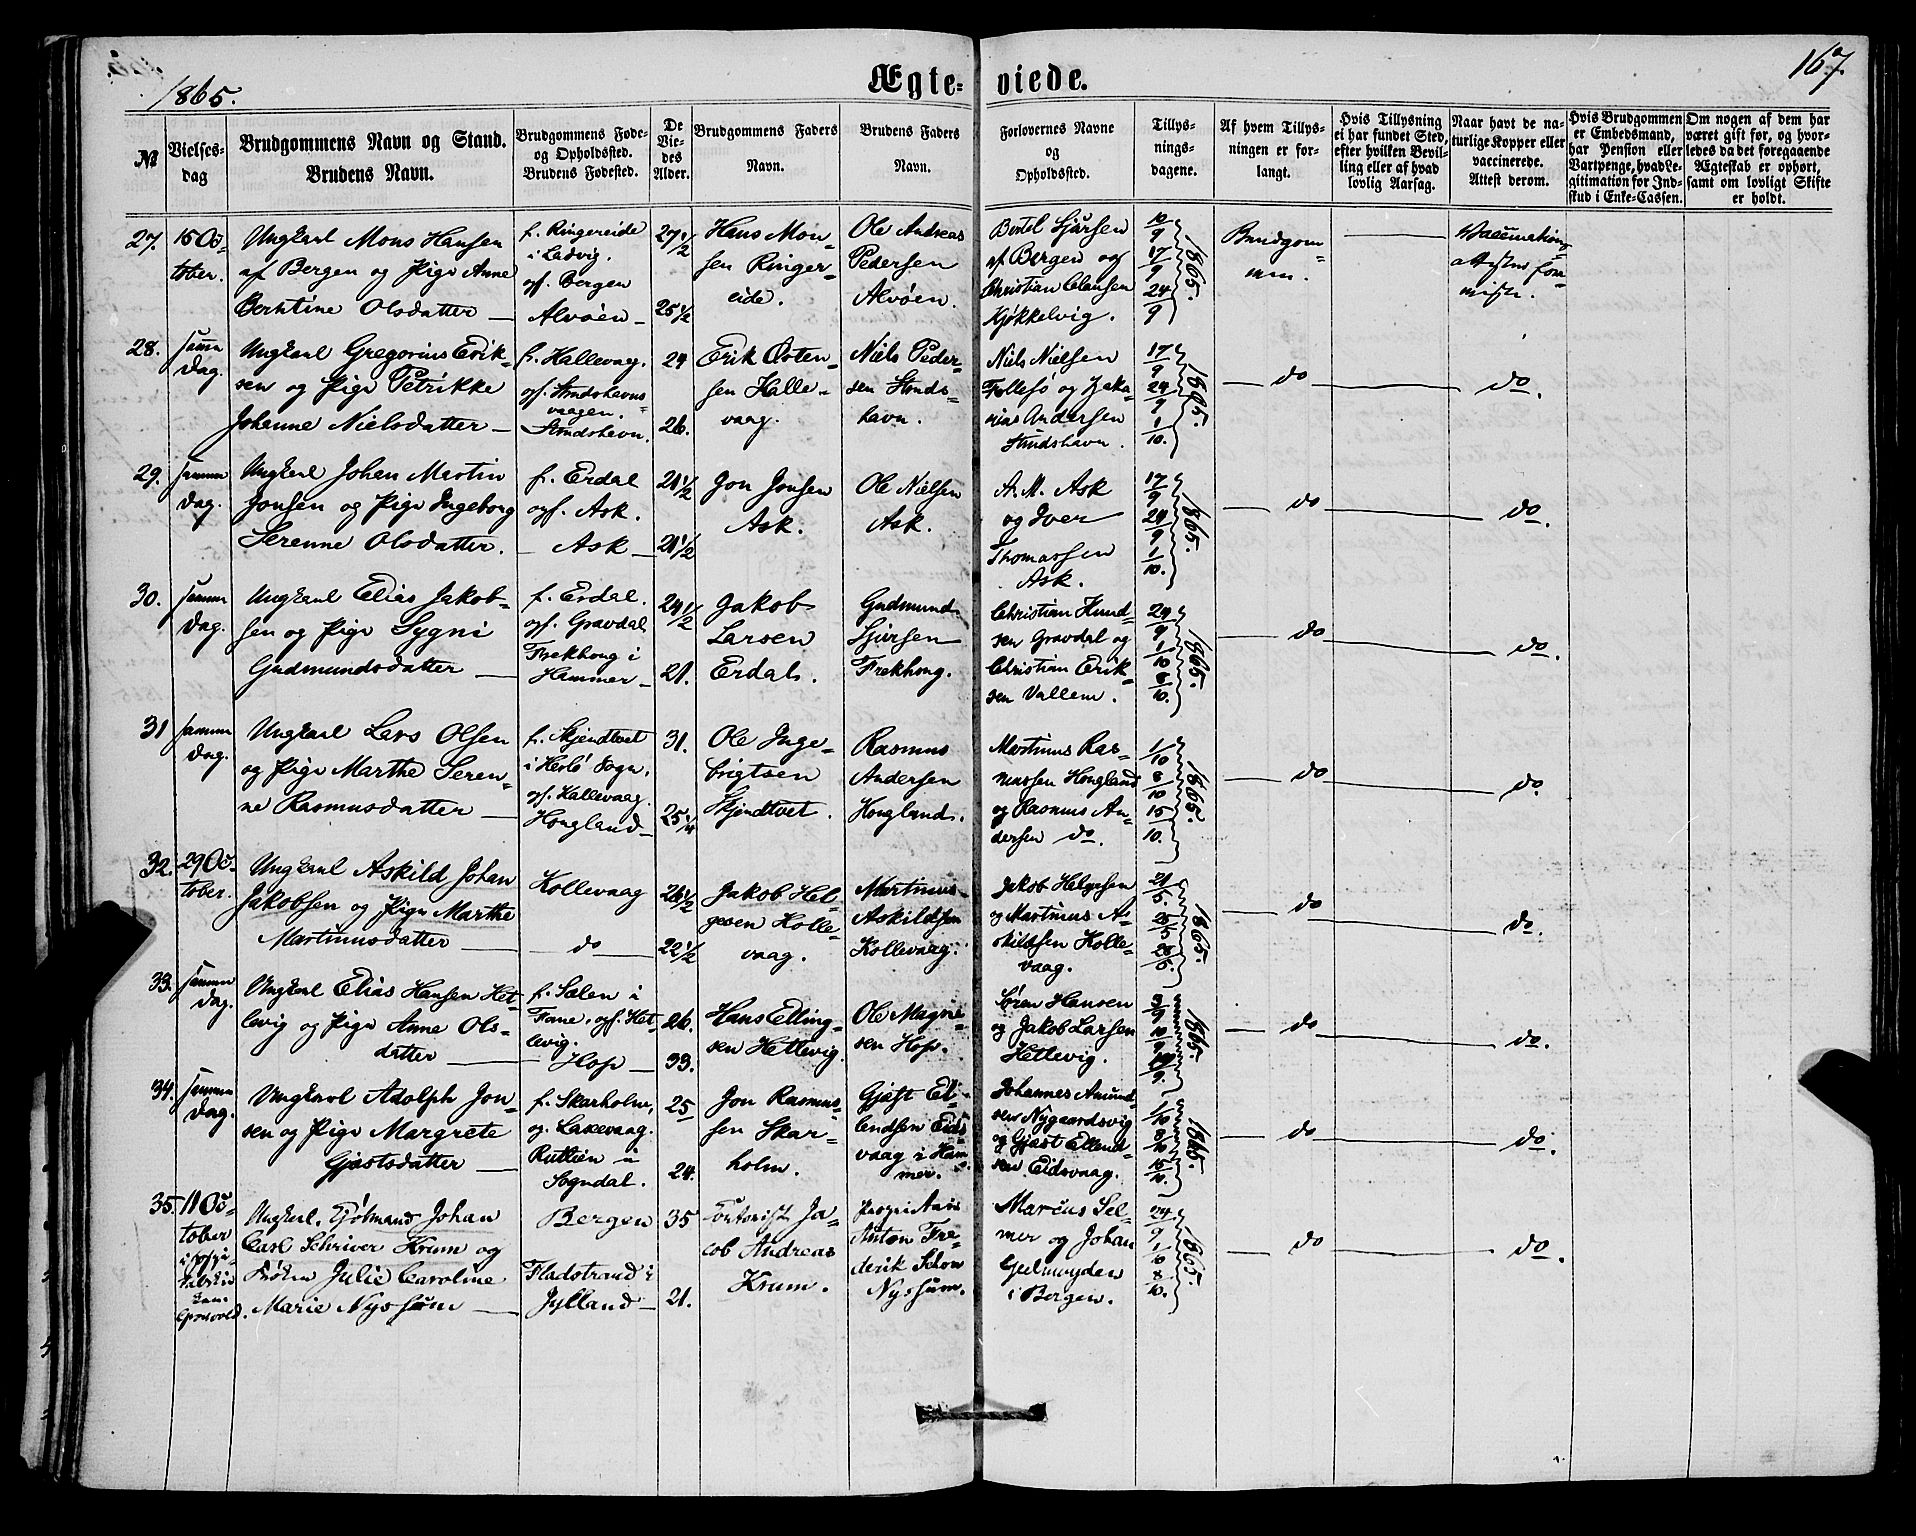 1865.
Ægte-
viede.
167.
№
Vielses-
dag
Brudgommens Navn og Stand.
Brudens Navn.
Brudgommens Føde-
og Opholdssted.
Brudens Fødested.
De
Vie-
des
Alder.
Brudgommens Faders
Navn.
Brudens Faders
Navn.
Forlovernes Navne
og
Opholdssted.
Tillys-
nings-
dagene.
Af hvem Tillys-
ningen er for-
langt.
Hvis Tillysning
ei har fundet Sted,
efter hvilken Bevil-
ling eller af hvad
lovlig Aarsag.
Naar havt de na-
turlige Kopper eller
vaccinerede.
Attest derom.
Hvis Brudgommen
er Embedsmand,
har Pension eller
Vartpenge, hvad Le-
gitimation for Ind-
skud i Enke-Cassen.
Om nogen af dem har
været gift før, og hvor-
ledes da det foregaaende
Ægteskab er ophørt,
samt om lovligt Skifte
er holdt.
27.
15 Oc-
tober.
Ungkarl Mons Hansen
af Bergen og Pige Anne
Berntine Olsdatter
f. Ringereide
i Ladvig.
opf. Bergen
Alvøen
27 1/2
25 1/2
Hans Mon-
sen Ringer-
eide.
Ole Andreas
Pedersen
Alvøen.
Bertel Sjursen
af Bergen og
Christian Clausen
Kjøkkelvig.
10/9
17/9
24/9
1865.
Brudgom-
men.
Vaccinations
28.
samme
Dag.
Ungkarl Gregorius Erik-
sen og Pige Petrikke
Johanne Nielsdatter
f. Hallevaag.
opf. Strudshavns-
vaagen.
Strudshavn.
24
26.
Erik Østen-
sen Halle-
vaag.
Niels Peder-
sen Struds-
havn.
Niels Nielsen
Follesø og Zaka-
rias Andersen
Strudshavn.
17/9
24/9
1/10.
1865.
do
do.
29.
samme
Dag.
Ungkarl Johan Martin
Jonsen og Pige Ingeborg
Serenne Olsdatter.
f. Erdal
opf. Ask.
Ask
21 1/2
21 1/2
Jon Jonsen
Ask.
Ole Nielsen
Ask.
A. M. Ask
og Iver
Thomassen
Ask.
17/9
24/9
1/10.
1865.
do
do.
30.
samme
Dag.
Ungkarl Elias Jakob-
sen og Pige Sygni
Gudmundsdatter
f. Erdal.
opf. Gravdal
Frekhoug i
Hammer
24 1/2
21.
Jakob
Larsen
Erdal.
Gudmund
Sjursen
Frekhoug.
Christian Knud-
sen Gravdal og
Christian Erik-
sen Vallem.
24/9
1/10
8/10.
1865.
do
do.
31
samme
Dag.
Ungkarl Lars Olsen
og Pige Marthe Seren-
ne Rasmusdatter
f. Skjendtvet
i Herlø Sogn.
opf. Hallevaag.
Hougland
31.
25 1/4
Ole Inge-
brigtsen
Skjendtvet.
Rasmus
Andersen
Hougland.
Martinus Ras-
mussen Hougland
og Rasmus An-
dersen do.
1/10
8/10
15/10.
1865.
do
do.
32.
29 Oc-
tober.
Ungkarl Askild Johan
Jakobsen og Pige Marthe
Martinusdatter
Kollevaag
do
26 1/2
22 1/2
Jakob Hel-
gesen Kolle-
vaag.
Martinus
Askildsen
Kollevaag.
Jakob Helgesen
og Martinus A-
skildsen Kolle-
vaag.
21/5.
25/5
28/5.
1865.
do
do.
33.
samme
Dag.
Ungkarl Elias Hansen Het-
levig og Pige Anne Ols-
datter
f. Sælen i
Fane, opf. Het-
levig.
Hop
26.
33.
Hans Elling-
sen Hetlevig.
Ole Magne-
sen Hop.
Søren Hansen
og Jakob Larsen
Hetlevig.
3/9
10/9
1865.
do
do.
34.
samme
Dag.
Ungkarl Adolph Jon-
sen og Pige Margrete
Gjøstsdatter
f. Skarholm,
og. Laxevaag.
Rutlien i
Sogndal.
25
24.
Jon Rasmus-
sen Skar-
holm.
Gjøst El-
lendsen Eids-
vaag i Ham-
mer.
Johannes Amund-
sen Nygaardsvig
og Gjøst Ellend-
sen Eidsvaag.
1/10
8/10
15/10.
1865.
do
do.
35.
11 Oc-
tober
Ungkarl, Kjøbmand Johan
Carl Schriver Krum og
Frøken Julie Caroline
Marie Nyssum
Bergen
Fladstrand i
Jylland
35
21.
Contorist Ja-
cob Andreas
Krum.
Anton Fre-
derik Schou
Nyssum.
Marcus Sel-
mer og Johan
Geelmuyden
i Bergen.
24/9
1/10
8/10.
1865.
do
do.